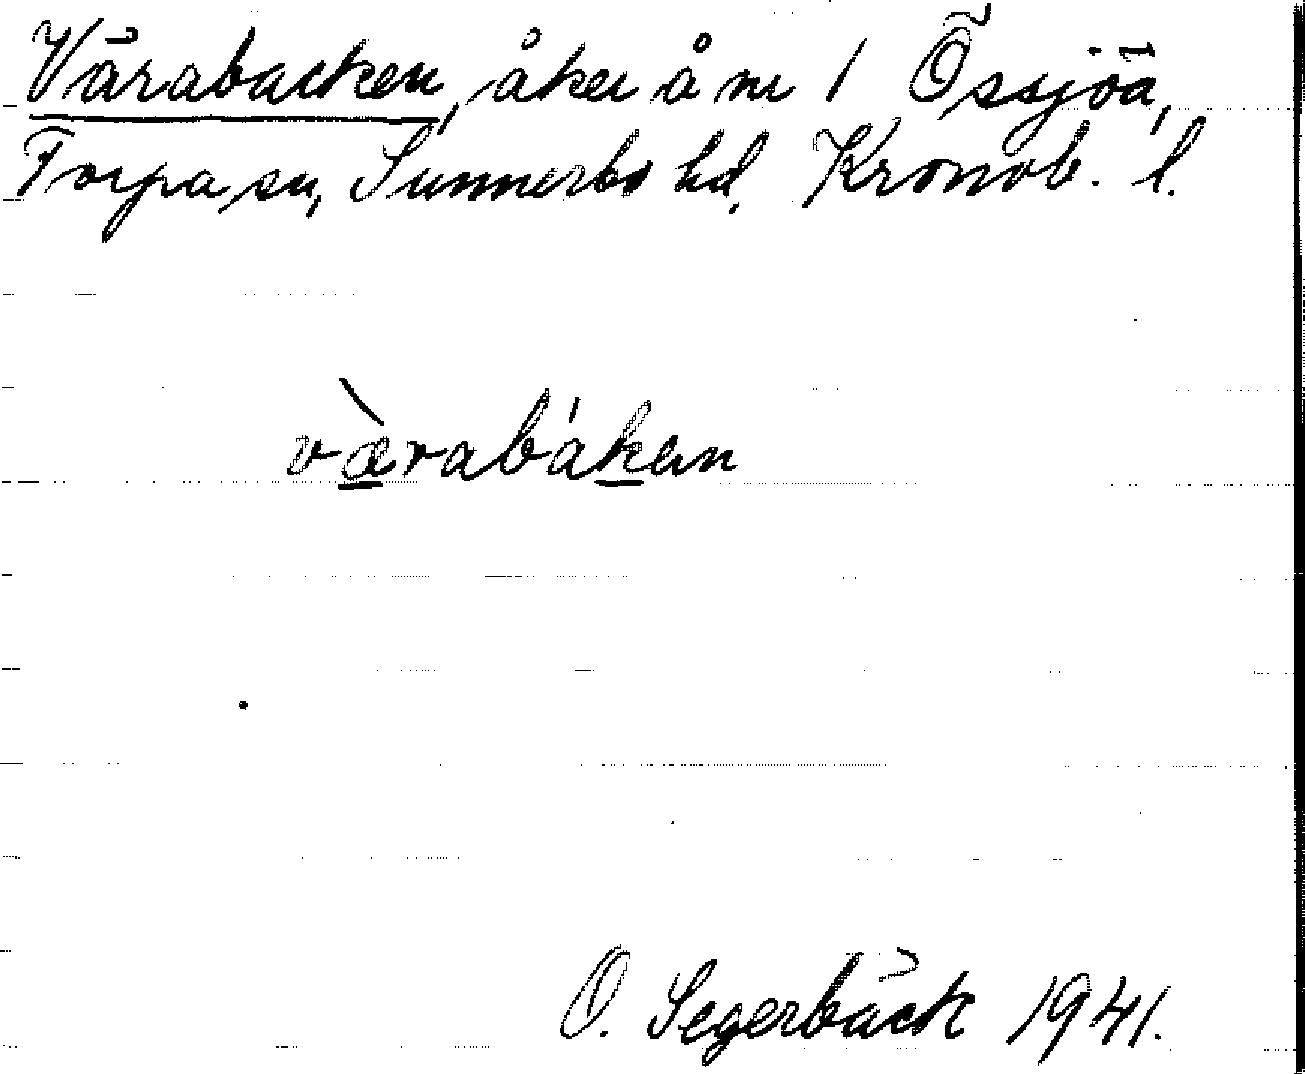 Värabacken, åker å nr 1 Össjöa,
Torpa sn, Sunnerbo hd, Kronob. l.
værabákan
O. Segerbäck 1941.